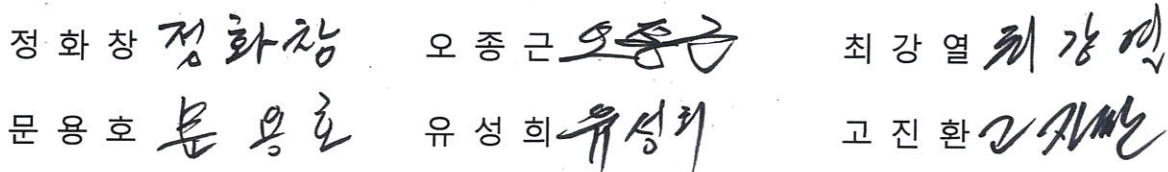 정 화 창 정화창 오 종 근 오종근 최 강 열 최강열
문 용 호 문용호 유 성 희 유성희 고 진 환 고진환